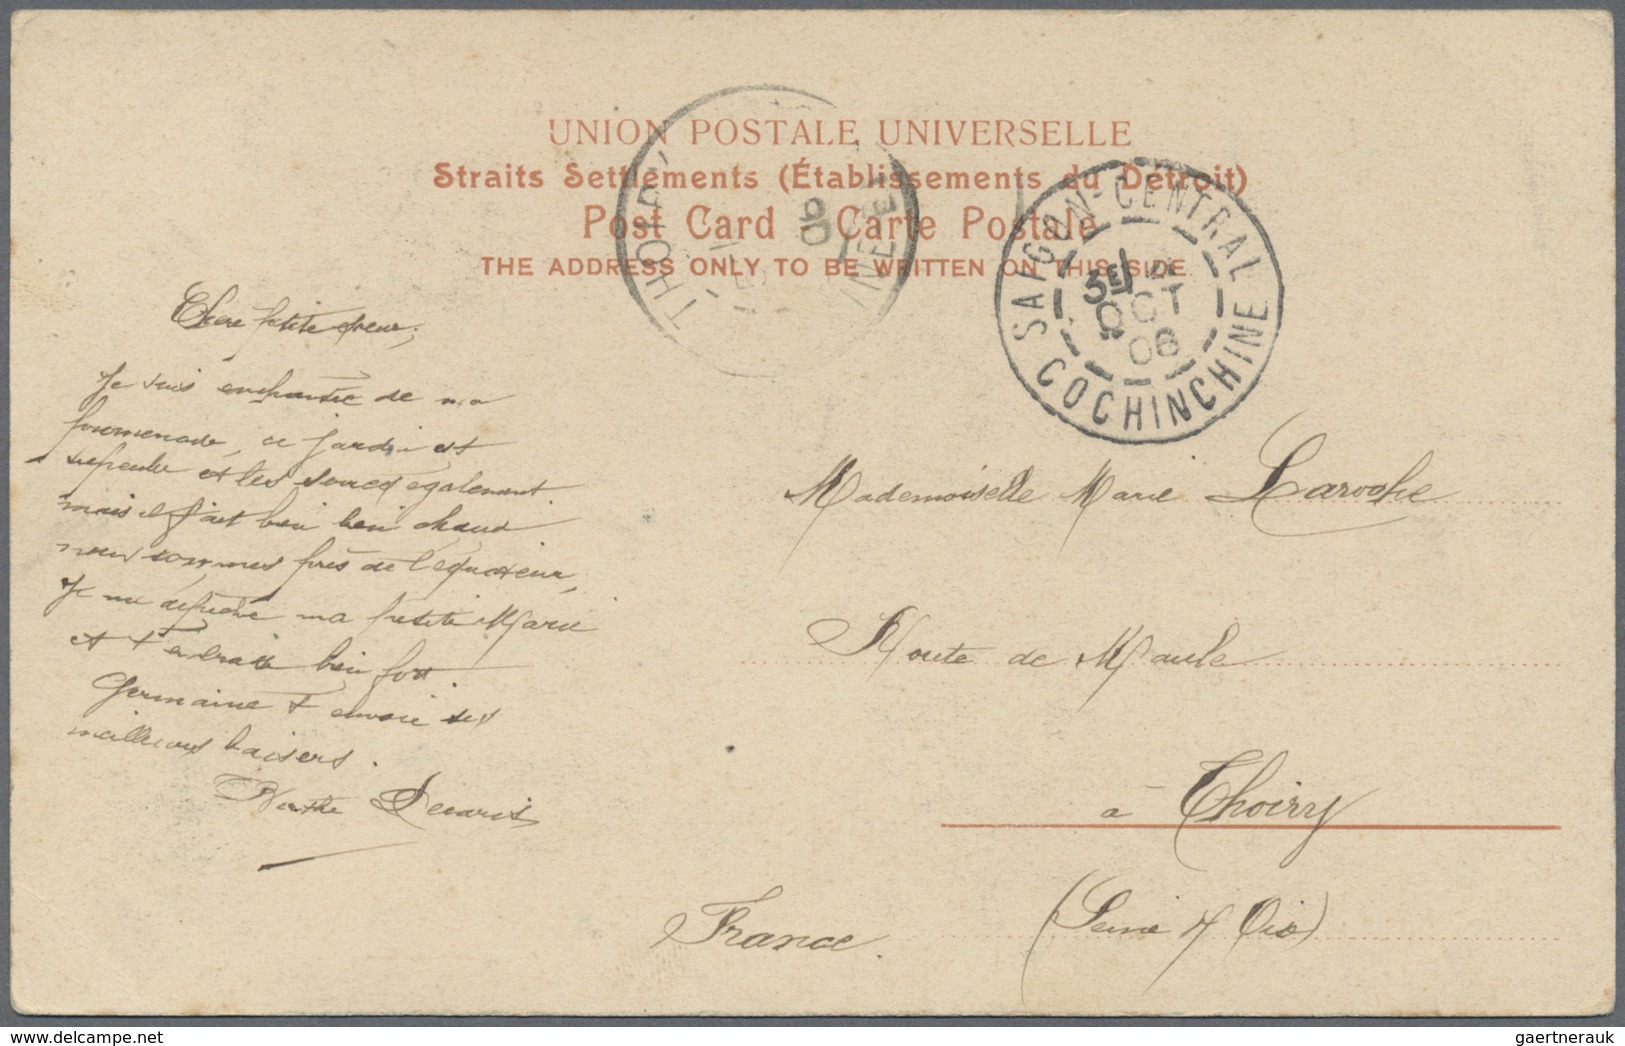 UNION POSTALE UNIVERSELLE
Straits Settlements (Établissements du Détroit)
Post Card Carte Postale
THE ADDRESS ONLY TO BE WRITTEN ON THIS SIDE.
THOIRY
SEINE ET
06
SAIGON-CENTRAL
OCT
06
COCHINCHINE
Chère petite
Je suis enchantée de ma
promenade, ce jardin est
superbe et les également
mais il fait bien bien chaud
nous sommes près de l'équateur,
Je me dépêche ma petite Marie
et t'embrasse bien fort.
Germaine t'envoie ses
meilleurs baisers.
Berthe
Mademoiselle Marie Laroche
Route de Maule
à Thoiry
(Seine & Oise)
France.
gaertnerauk @ www.delcampe.net